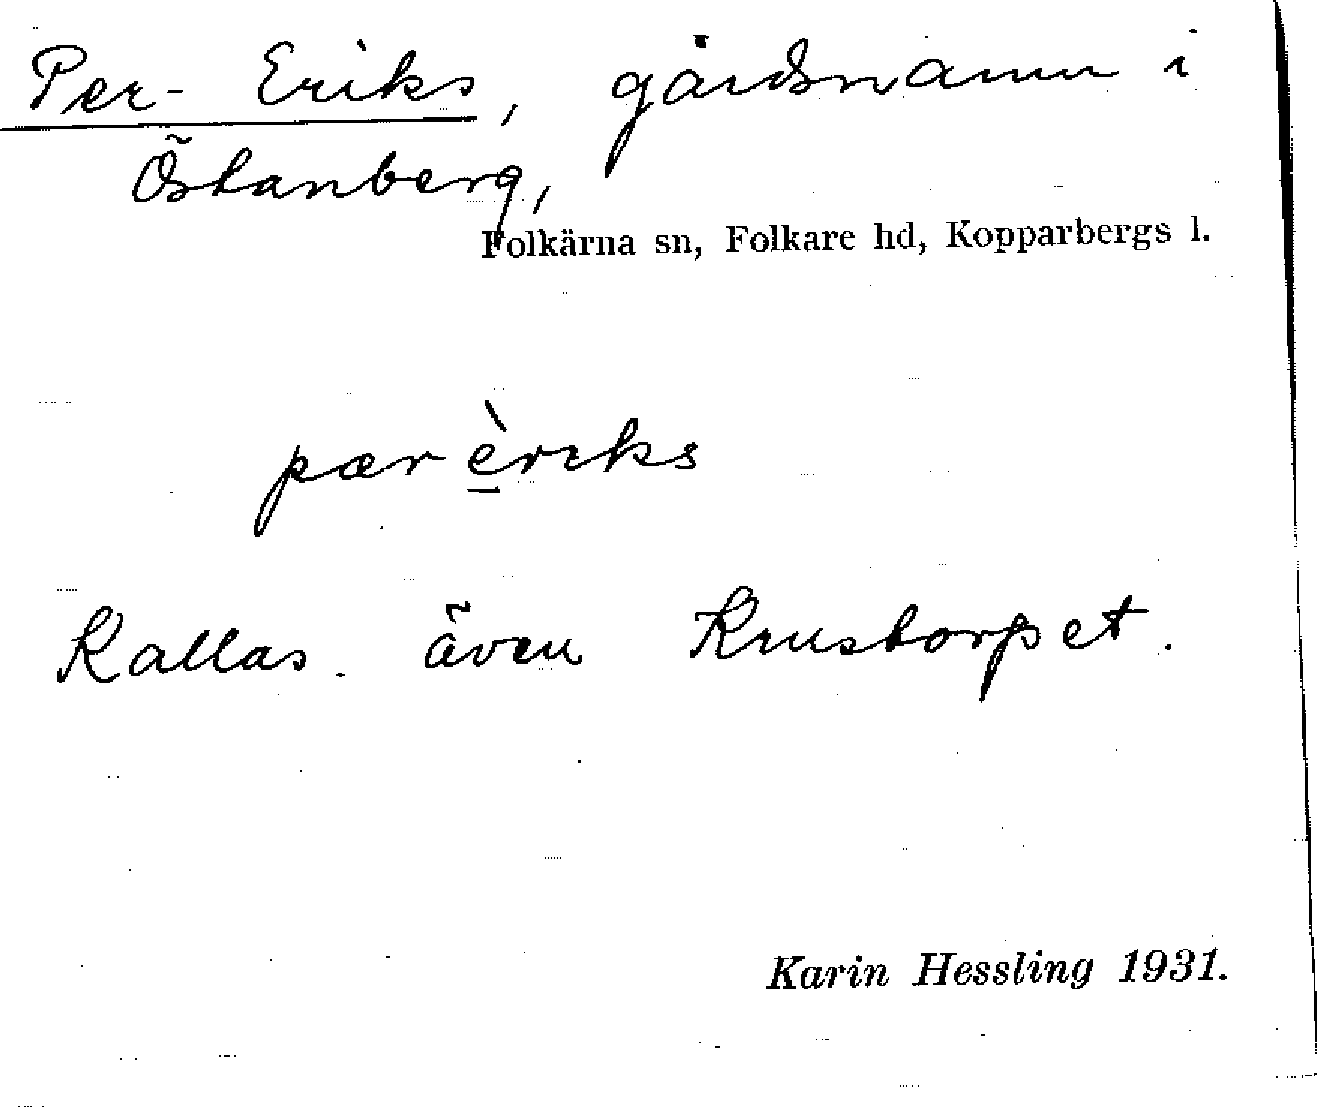 Per-Eriks, gårdsnamn i
Östanberg,
Folkärna sn, Folkare hd, Kopparbergs l.
pær è̱rıks
Kallas även Krustorpet.
Karin Hessling 1931.